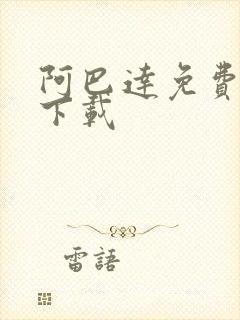 阿巴達免費
下載
雷語